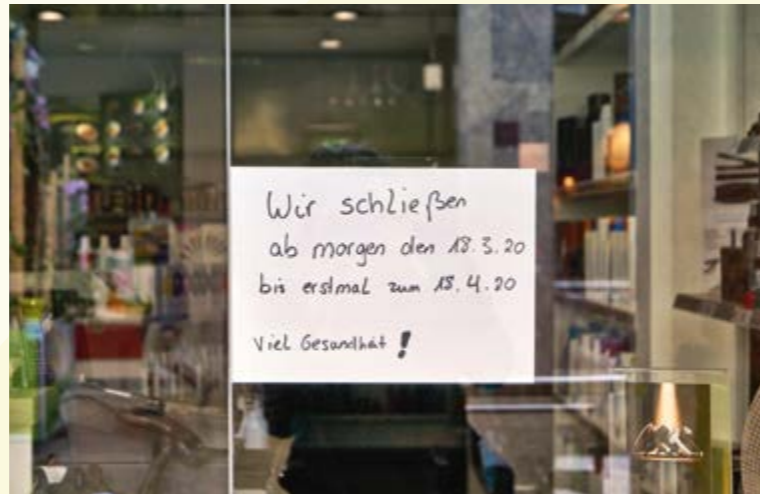 Wir schließen
ab morgen den 18.3.20
bis erstmal zum 18.4.20
Viel Gesundhat !